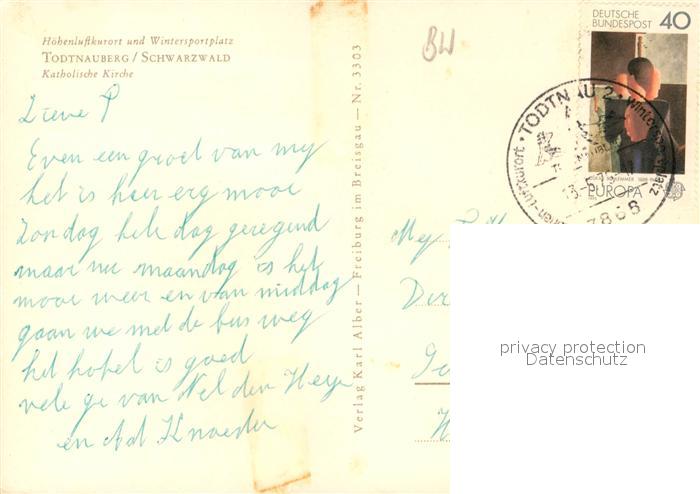 Höhenluftkurort und Wintersportplatz
TODTNAUBERG / SCHWARZWALD
Katholische Kirche
BW
DEUTSCHE
BUNDESPOST 40
EUROPA
TODTNAU 2 • Wintersportplatz
-Luftkurort •
7868
Lieve P
Even een groet van my
het is heer erg mooi
Zondag hele dag geregend
maar nu maandag is het
mooi weer en van middag
gaan we met de bus weg
het hotel is goed
vele gr van Nel den Heyer
en Ad Knoester
Verlag Karl Alber — Freiburg im Breisgau — Nr. 3303
Mej
privacy protection
Datenschutz